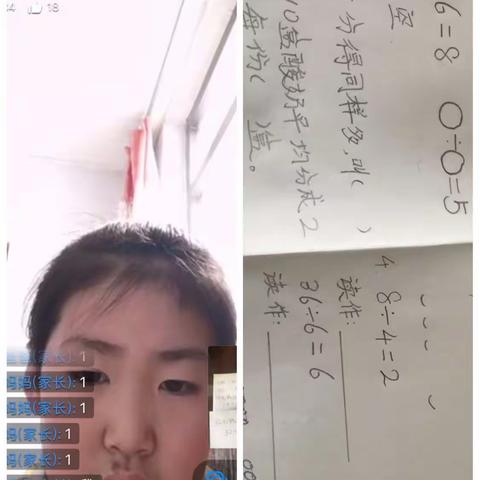 18
(家长): 1
妈妈(家长): 1
妈妈(家长): 1
妈(家长): 1
妈(家长): 1
6=8 ○÷○=5
分得同样多,叫( )
10盒酸奶平均分成2
每份( )盒。
8÷4=2
读作:
36÷6=6
读作: